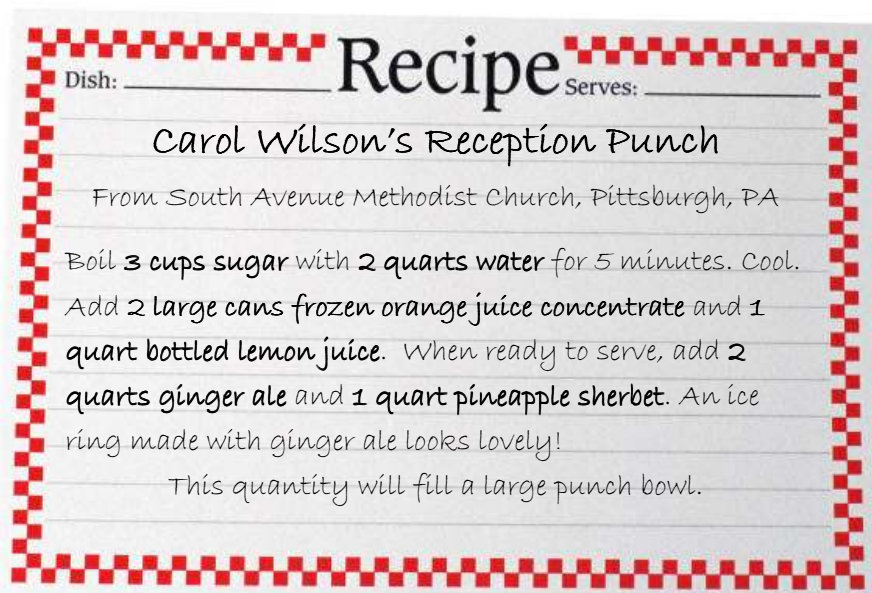 Dish: Recipe Serves:
Carol Wilson's Reception Punch
From South Avenue Methodist Church, Pittsburgh, PA
Boil 3 cups sugar with 2 quarts water for 5 minutes. Cool.
Add 2 large cans frozen orange juice concentrate and 1
quart bottled lemon juice. When ready to serve, add 2
quarts ginger ale and 1 quart pineapple sherbet. An ice
ring made with ginger ale looks lovely!
This quantity will fill a large punch bowl.